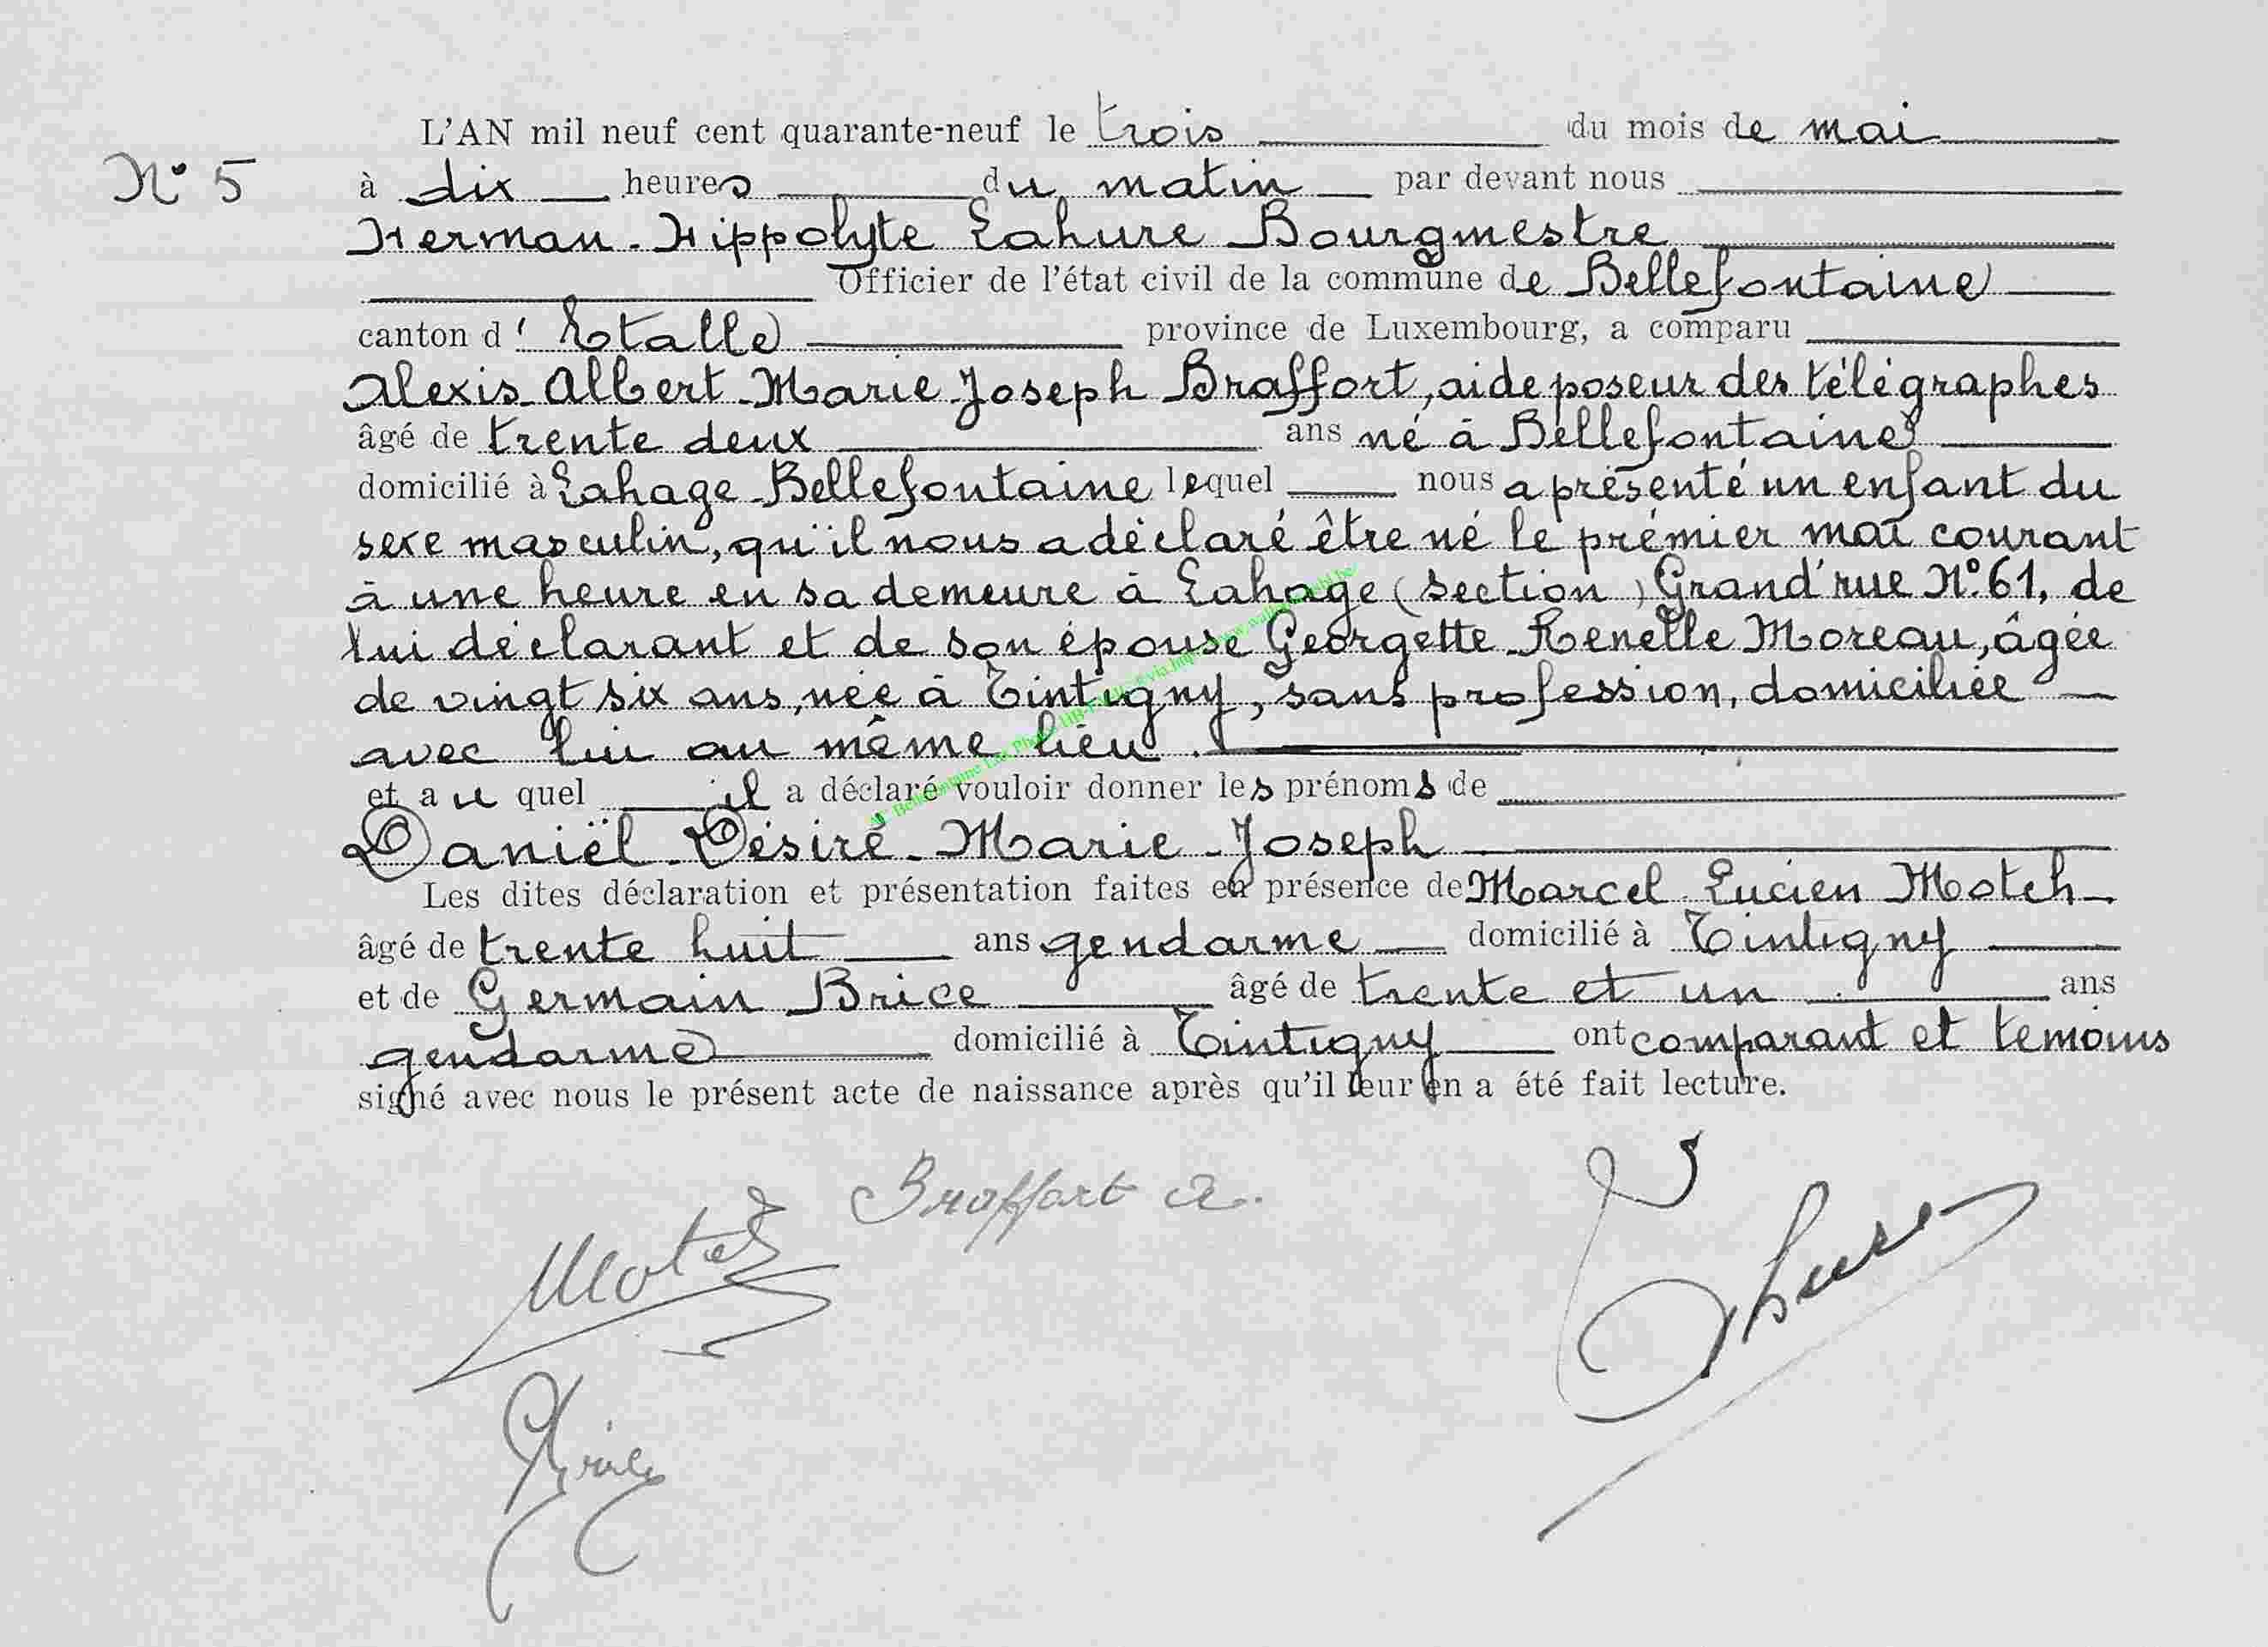 L'AN mil neuf cent quarante-neuf le trois du mois de mai
N° 5
à dix heures du matin par devant nous
Herman-Hippolyte Lahure Bourgmestre
Officier de l'état civil de la commune de Bellefontaine
canton d'Etalle province de Luxembourg, a comparu
Alexis-Albert-Marie-Joseph Braffort, aide poseur des télégraphes
âgé de trente deux ans né à Bellefontaine
domicilié à Lahage-Bellefontaine lequel nous a présenté un enfant du
sexe masculin, qu'il nous a déclaré être né le prémier mai courant
à une heure en sa demeure à Lahage (section) Grand'rue N°.61, de
lui déclarant et de son épouse Georgette-Renelle Moreau, âgée
de vingt six ans, née à Tintigny, sans profession, domiciliée
avec lui au même lieu.
et au quel il a déclaré vouloir donner les prénoms de
Daniël-Désiré-Marie-Joseph
Les dites déclaration et présentation faites en présence de Marcel Lucien Motch
âgé de trente huit ans gendarme domicilié à Tintigny
et de Germain Brice âgé de trente et un ans
gendarme domicilié à Tintigny ont comparant et temoins
signé avec nous le présent acte de naissance après qu'il leur en a été fait lecture.
Braffort A.
Motch